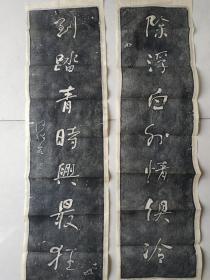 除浮白外情俱冷
到踏青時興最狂